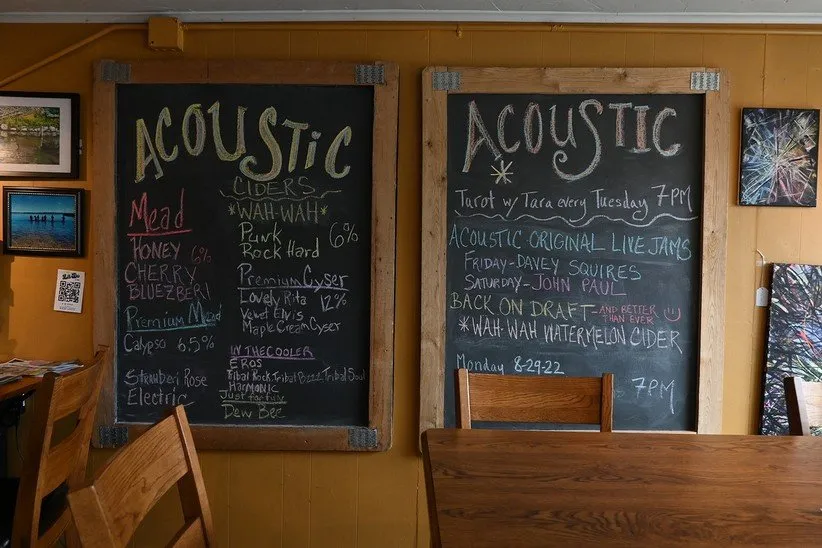 ACOUSTIC
Mead
HONEY 6%
CHERRY
BLUEZBERI
Premium Mead
Calypso 6.5%
Strawberi Rose
Electric
CIDERS
*WAH-WAH*
Punk
Rock Hard 6%
Premium Cyser
Lovely Rita 12%
Velvet Elvis
Maple Cream Cyser
IN THE COOLER
EROS
Tribal Rock, Tribal Buzz, Tribal Soul
HARMONIC
Just for fun
Dew Bee
ACOUSTIC
Tarot w/ Tara every Tuesday 7PM
ACOUSTIC ORIGINAL LIVE JAMS
FRIDAY-DAVEY SQUIRES
SATURDAY-JOHN PAUL
BACK ON DRAFT-AND BETTER THAN EVER
*WAH-WAH WATERMELON CIDER
Monday 8-29-22
7PM